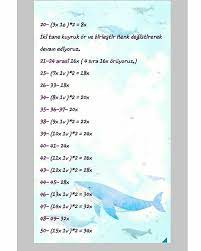 20- (3x 1v )*2 = 8x
İki tane kuyruk ör ve birleştir Renk değiştirerek
devam ediyoruz.
21-24 arası 16x ( 4 sıra 16x örüyoruz,)
25- (7x 1v )*2 = 18x
26- 33- 18x
34- (8x 1v )*2 = 20x
35-36-37- 20x
38- (9x 1v )*2 = 22x
39- (10x 1v )*2 = 24x
40- 41- 24x
42- (11x 1v )*2 = 26x
43- (12x 1v )*2 = 28x
44- 45- 28x
46- (13x 1v )*2 = 30x
47- (14x 1v )*2 = 32x
48- 49- 32x
50- (15x 1v )*2 = 34x